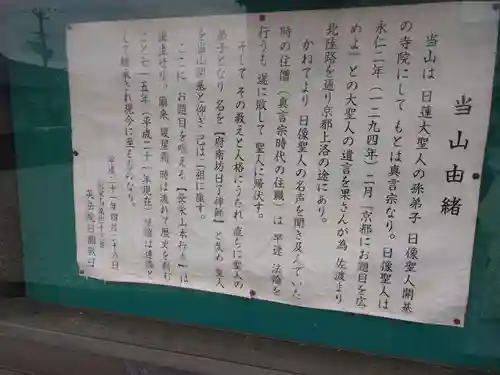 当山由緒
当山は 日蓮大聖人の孫弟子 日像聖人開基
の寺院にして もとは真言宗なり。日像聖人は
永仁二年（一二九四年）二月「京都にお題目を広
めよ」との大聖人の遺言を果さんが為 佐渡より
北陸路を通り京都上洛の途にあり。
かねてより 日像聖人の名声を聞き及んでいた
時の住僧（真言宗時代の住職）は 早速 法論を
行うも 遂に敗して 聖人に帰伏す。
そして その教えと人格にうたれ 直ちに聖人の
弟子となり 名を【府南坊日了律師】と改め 聖人
を当山開基と仰ぎ 己は二祖に座す。
ここに お題目を唱える【長久山本行寺】は
誕生せり。爾来 幾星霜 時は流れて歴史を刻む
こと七一五年（平成二十一年現在） 法燈は連綿と
して継承され現今に至るものなり。
平成二十一年四月二十八日